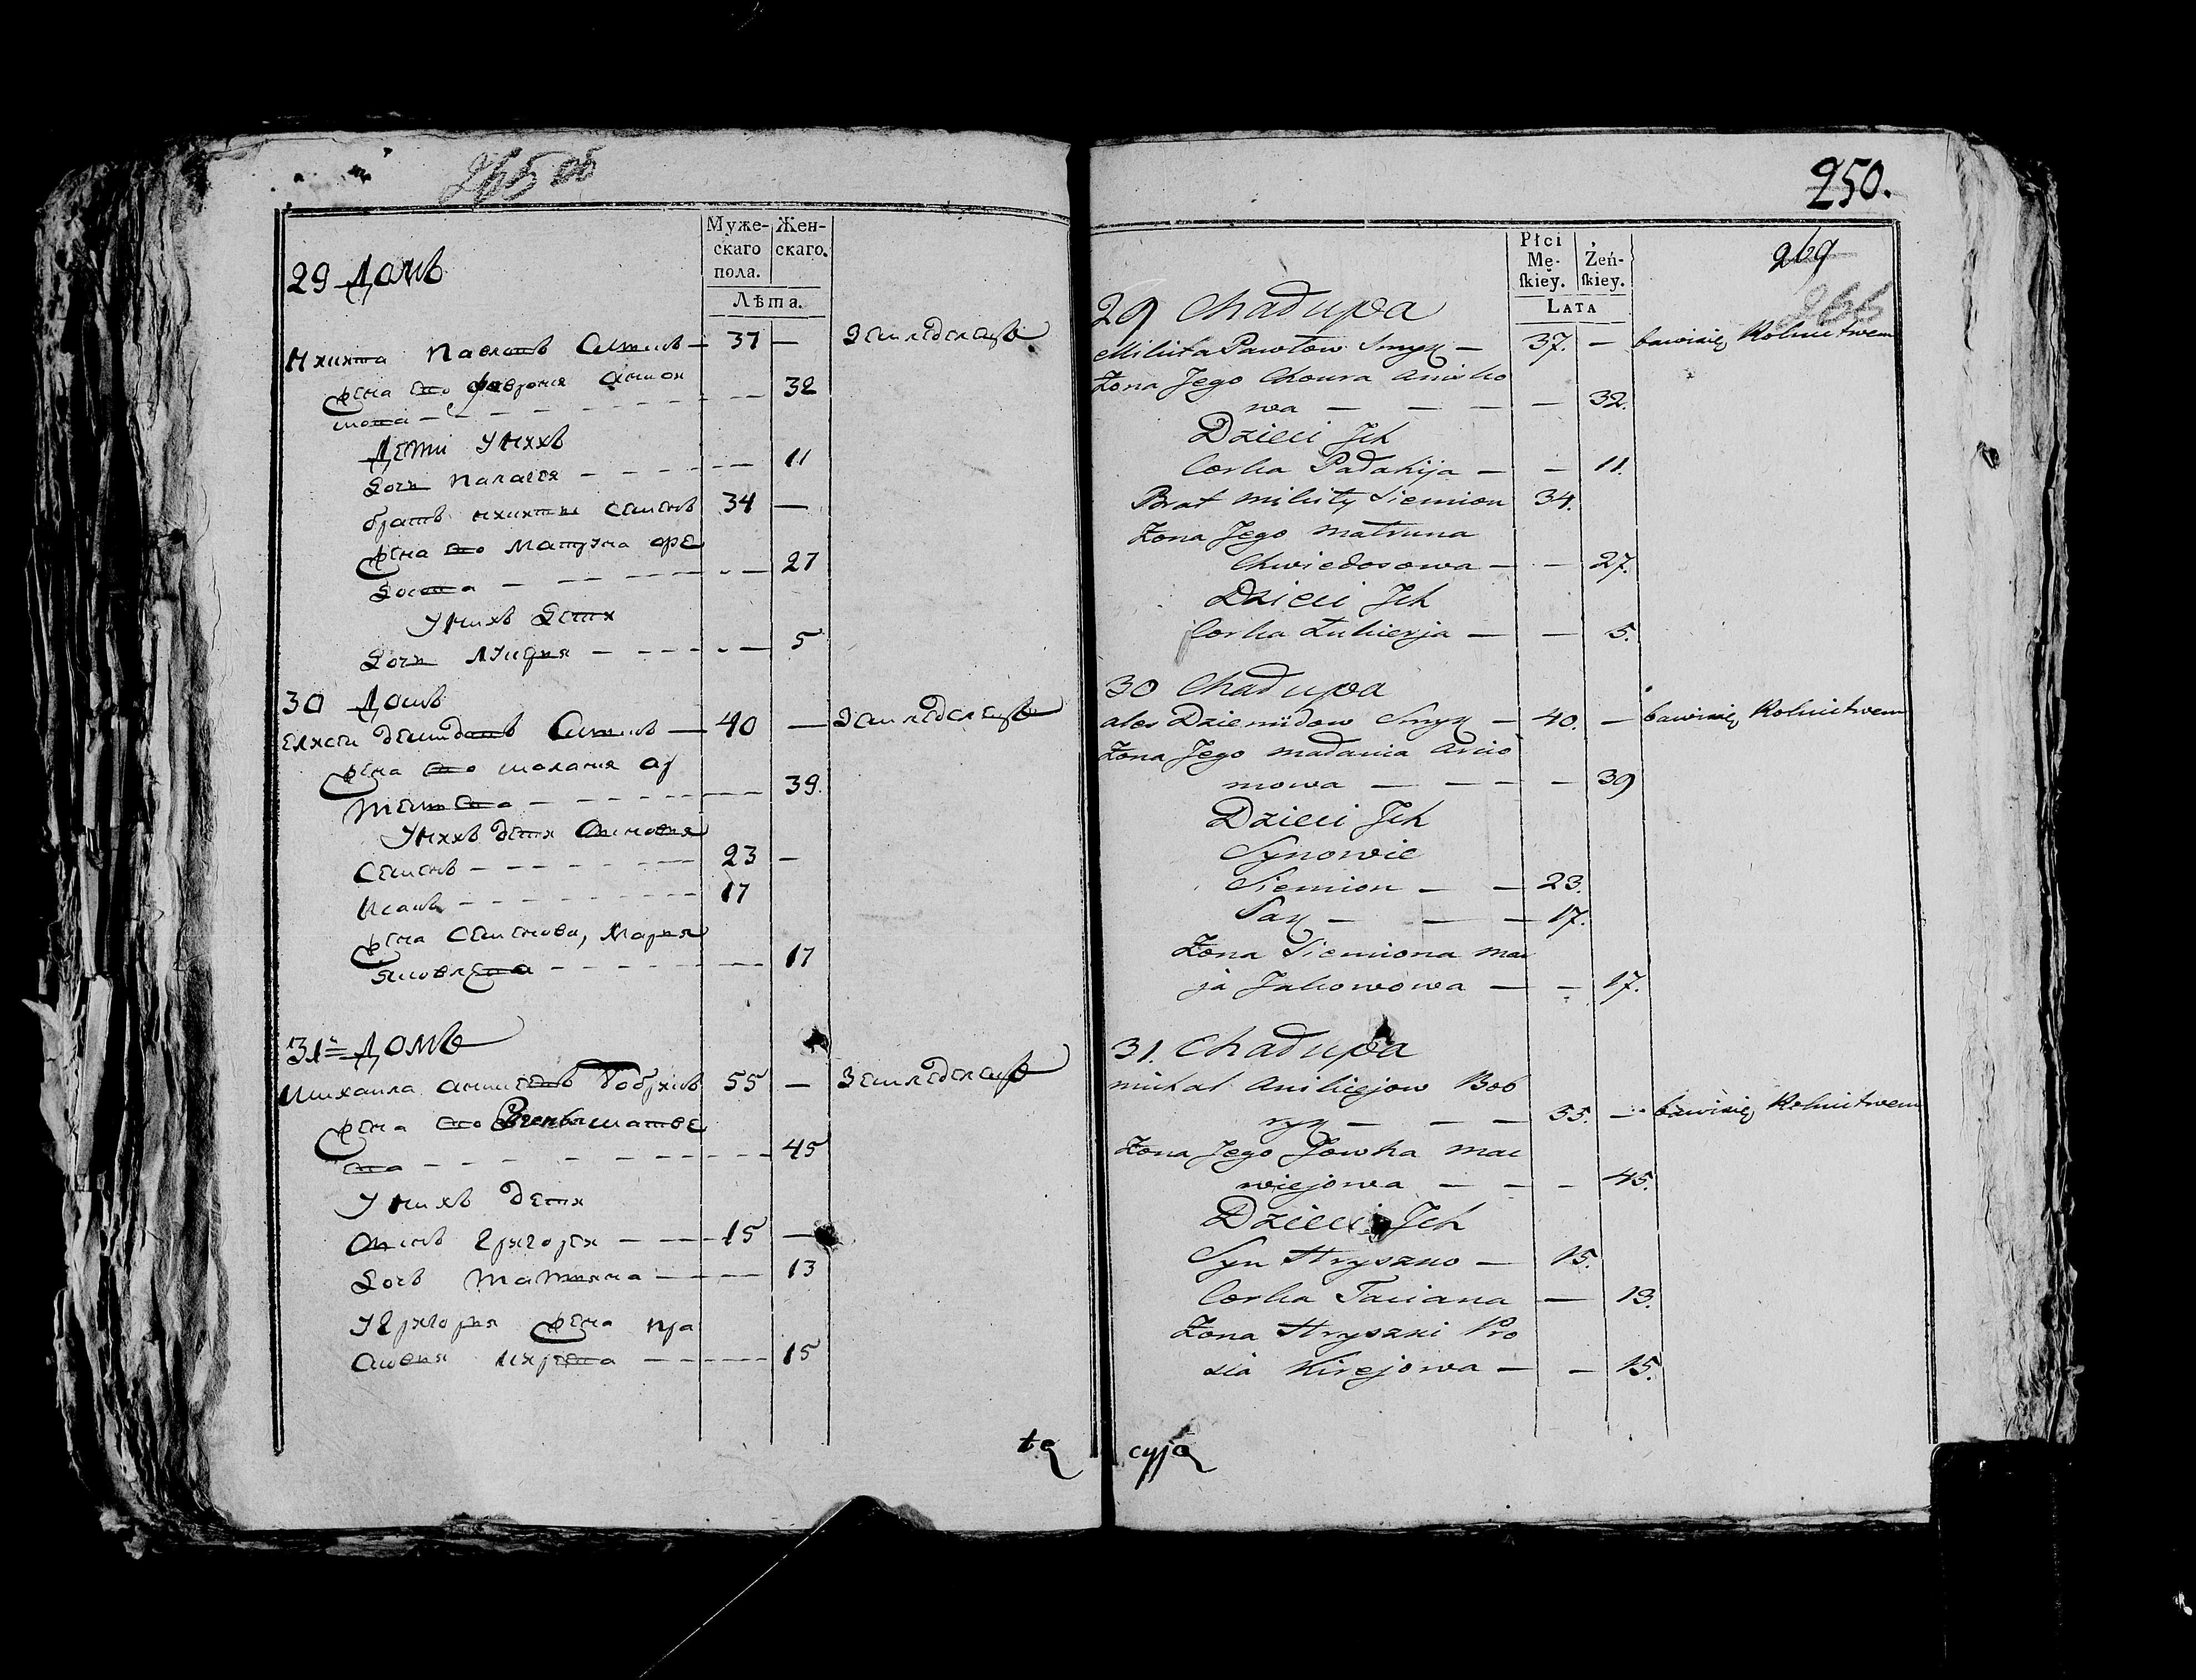 265 об
Муже-
скаго
пола.
Жен-
скаго.
Лѣта.
29 Домъ
Никита Павловъ 37 —
жена его Феврония Антон
32
Дети у нихъ
Дочи Палагея — 11
братъ Никиты Семенъ 34 —
жена его Матруна Фе
досова — 27
У нихъ дети
Дочи — 5
30 Домъ
Елисей Демидовъ — 40 —
жена его Малания Ар
темева — 39.
У нихъ дети Сыновья
Семенъ — 23 —
Исакъ — 17
жена Семенова, Мария
Яковлева — 17
31 Домъ
Михаила 55 —
жена его Матве
ева — 45
У нихъ дети
Сынъ Григорей — 15 —
Дочь Татияна — 13
У Григория жена Пра
15
tą
250.
269
266
Płci
Mę-
ſkiey.
Żeń-
ſkiey.
LATA
29 Chadupa
Mikita Pawłow Smyk — 37. — bawi się Rolnictwem
Żona Jego Choura
wa — — — — 32.
Dzieci Jch
Corka Padakija — — 11.
Brat Mikity Siemion 34.
Żona Jego Matruna
Chwiedosowa — — 27.
Dzieci Jch
Corka Łukierja — — 5.
30 Chadupa
Alex Dziemidow Smyk — 40. — bawi się Rolnictwem
Żona Jego Madania Arcio
mowa — — — — 39
Dzieci Jch
Synowie
Siemion — — 23.
— — 17.
Żona Siemiona Mar
ja Jakowowa — — 17.
31. Chadupa
Michał Anikiejow Bob
ryk — — — 55. — bawi się Rolnictwem
Żona Jego Jowka Mac
wiejowa — — — 45.
Dzieci Jch
Syn Hryszko — 15.
Corka Taciana — 13.
Żona Hryszki Pro
sia Kirejowa — — 15.
cyją